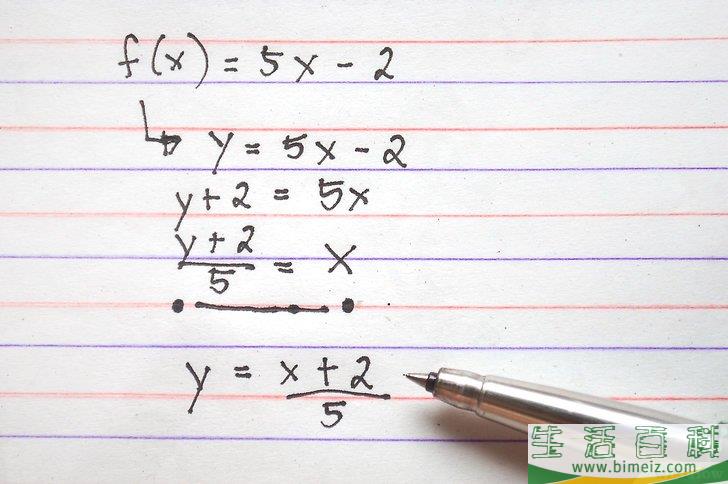 f(x) = 5x - 2
y = 5x - 2
y + 2 = 5x
y + 2
5
= x
y = x + 2
5
生活百科
www.bimeiz.com